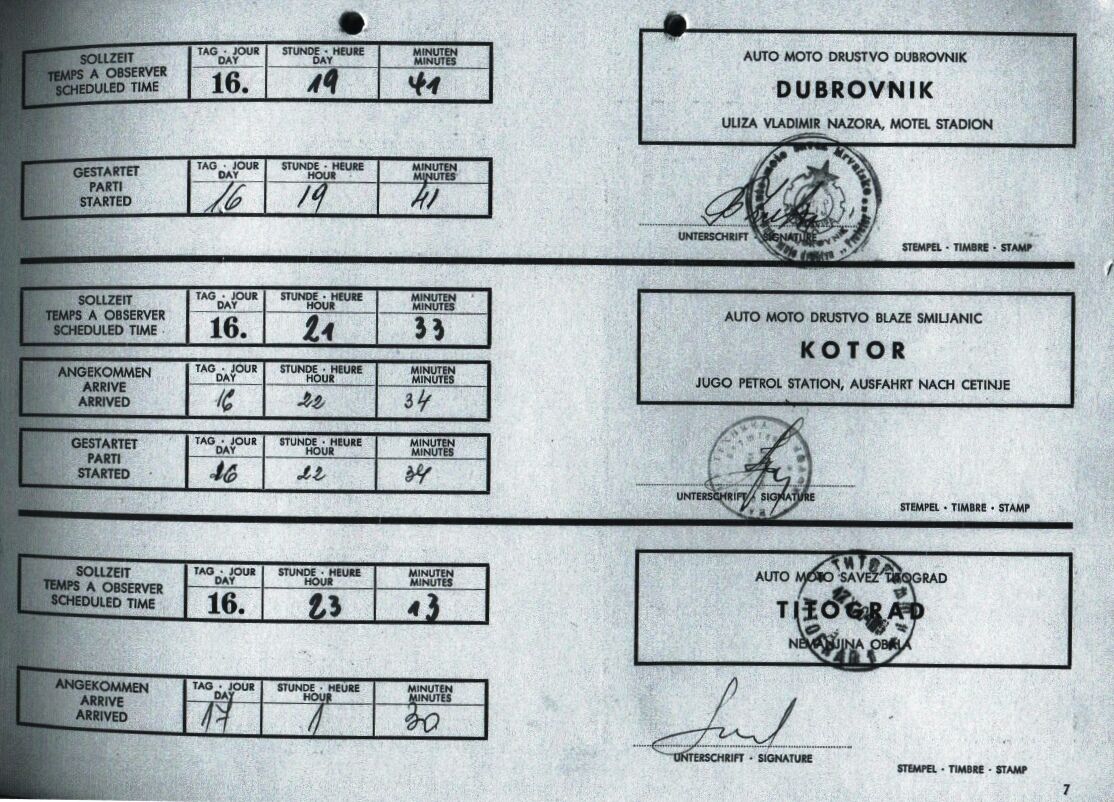 SOLLZEIT
TEMPS A OBSERVER
SCHEDULED TIME
TAG · JOUR
DAY
16.
STUNDE · HEURE
DAY
19
MINUTEN
MINUTES
41
AUTO MOTO DRUSTVO DUBROVNIK
DUBROVNIK
ULIZA VLADIMIR NAZORA, MOTEL STADION
GESTARTET
PARTI
STARTED
TAG · JOUR
DAY
16
STUNDE · HEURE
HOUR
19
MINUTEN
MINUTES
41
UNTERSCHRIFT · SIGNATURE
STEMPEL · TIMBRE · STAMP
SOLLZEIT
TEMPS A OBSERVER
SCHEDULED TIME
TAG · JOUR
DAY
16.
STUNDE · HEURE
HOUR
21
MINUTEN
MINUTES
33
AUTO MOTO DRUSTVO BLAZE SMILJANIC
KOTOR
JUGO PETROL STATION, AUSFAHRT NACH CETINJE
ANGEKOMMEN
ARRIVE
ARRIVED
TAG · JOUR
DAY
16
STUNDE · HEURE
HOUR
22
MINUTEN
MINUTES
34
GESTARTET
PARTI
STARTED
TAG · JOUR
DAY
16
STUNDE · HEURE
HOUR
22
MINUTEN
MINUTES
34
UNTERSCHRIFT · SIGNATURE
STEMPEL · TIMBRE · STAMP
SOLLZEIT
TEMPS A OBSERVER
SCHEDULED TIME
TAG · JOUR
DAY
16.
STUNDE · HEURE
HOUR
23
MINUTEN
MINUTES
13
AUTO MOTO SAVEZ TITOGRAD
TITOGRAD
NEMANJINA OBALA
ANGEKOMMEN
ARRIVE
ARRIVED
TAG · JOUR
DAY
17
STUNDE · HEURE
HOUR
1
MINUTEN
MINUTES
30
UNTERSCHRIFT · SIGNATURE
STEMPEL · TIMBRE · STAMP
7